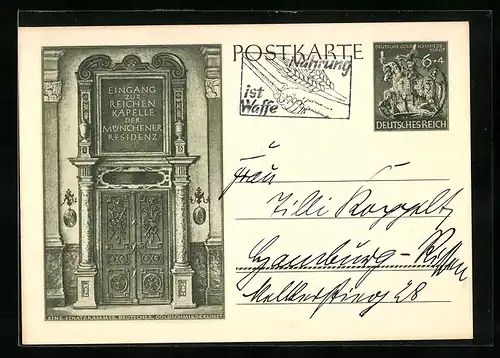 POSTKARTE
Nahrung
ist
Waffe
DEUTSCHE GOLDSCHMIEDE-
KUNST
6+4
DEUTSCHES REICH
EINGANG
ZUR
REICHEN
KAPELLE
DER
MÜNCHENER
RESIDENZ
EINE SCHATZKAMMER DEUTSCHER GOLDSCHMIEDEKUNST
Frau
Tilli Koppelt
Hamburg-Rissen
28